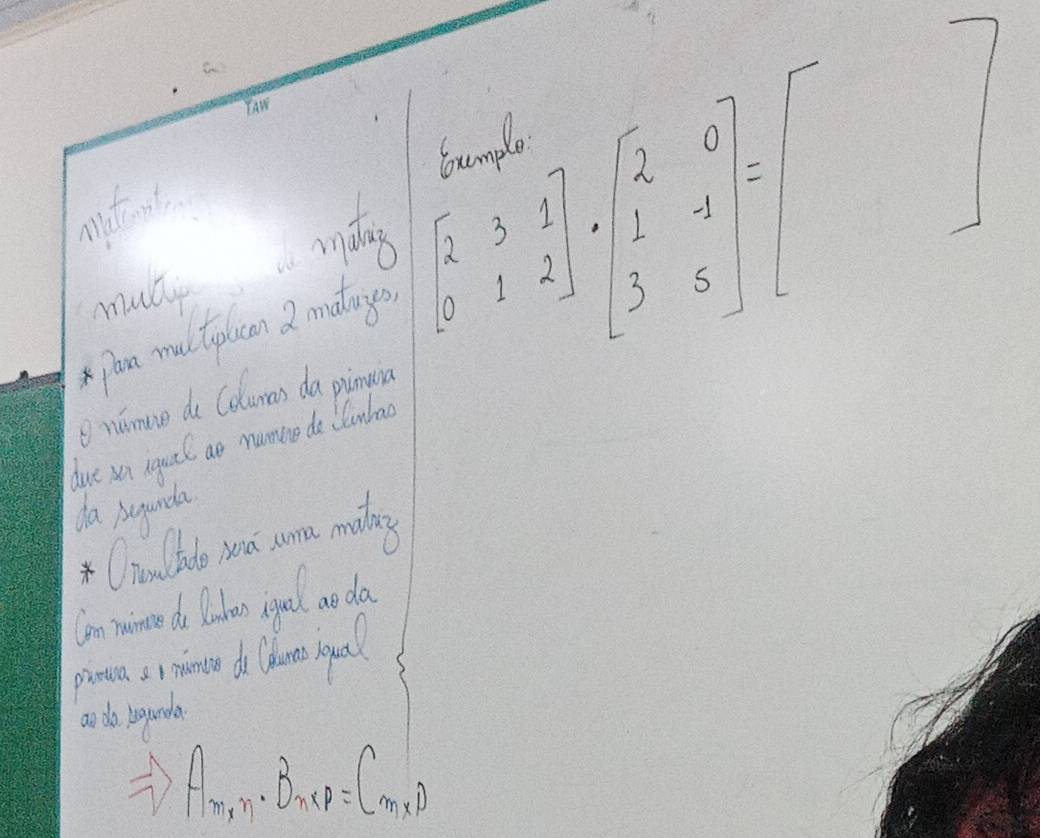 TAW
matriz
* Para multiplicar 2 matrizes,
o número de Colunas da primeira
deve ser igual ao numero de linhas
da segunda.
* O resultado será uma matriz
Com número de linhas igual ao da
primeira e o número de Colunas igual
ao da segunda.
⇒ Am×n · Bn×p = Cm×p
Exemplo:
[2 3 1] · [2 0] = [ ]
[0 1 2] [1 -1]
[3 5]